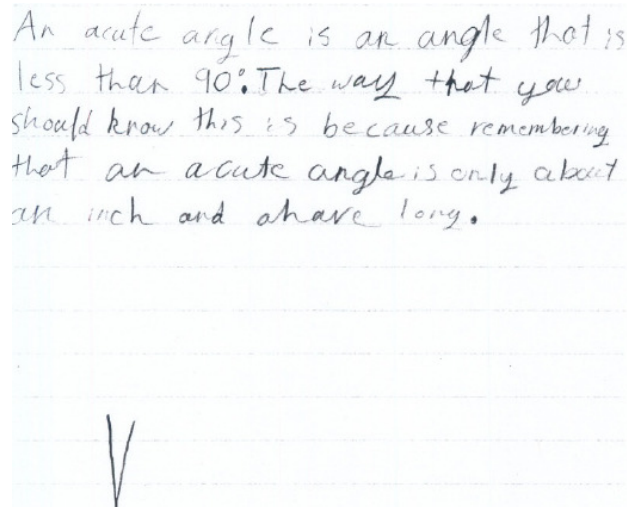 An acute angle is an angle that is
less than 90°. The way that you
should know this is because remembering
that an acute angle is only about
an inch and ahave long.